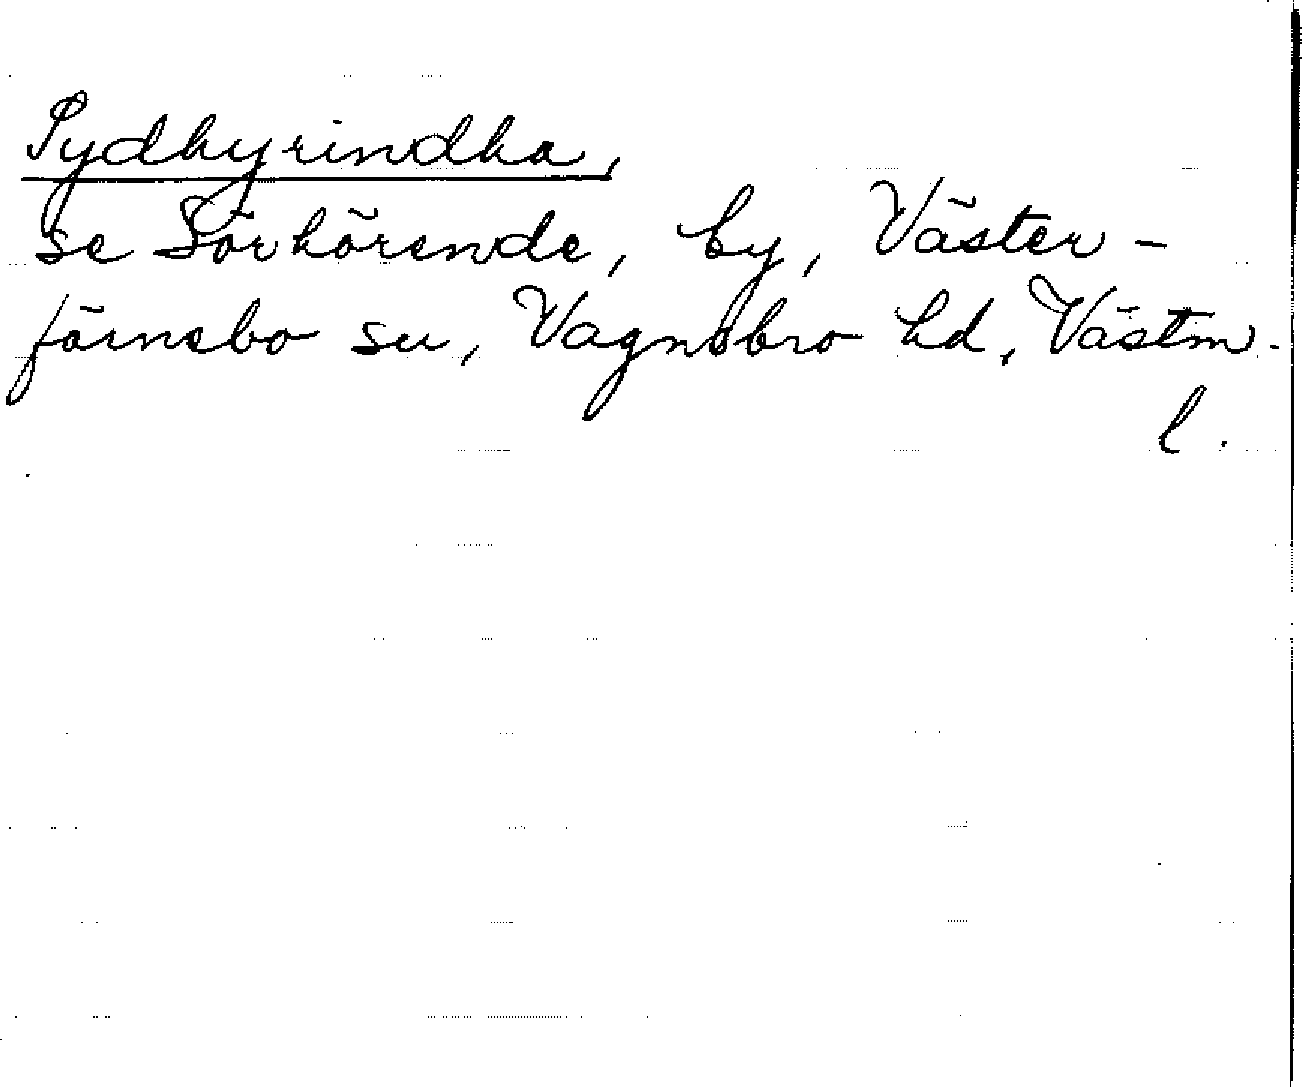 Sydhyrindha,
se Sörhörende, by, Väster-
färnebo sn, Vagnsbro hd, Västm.
l.